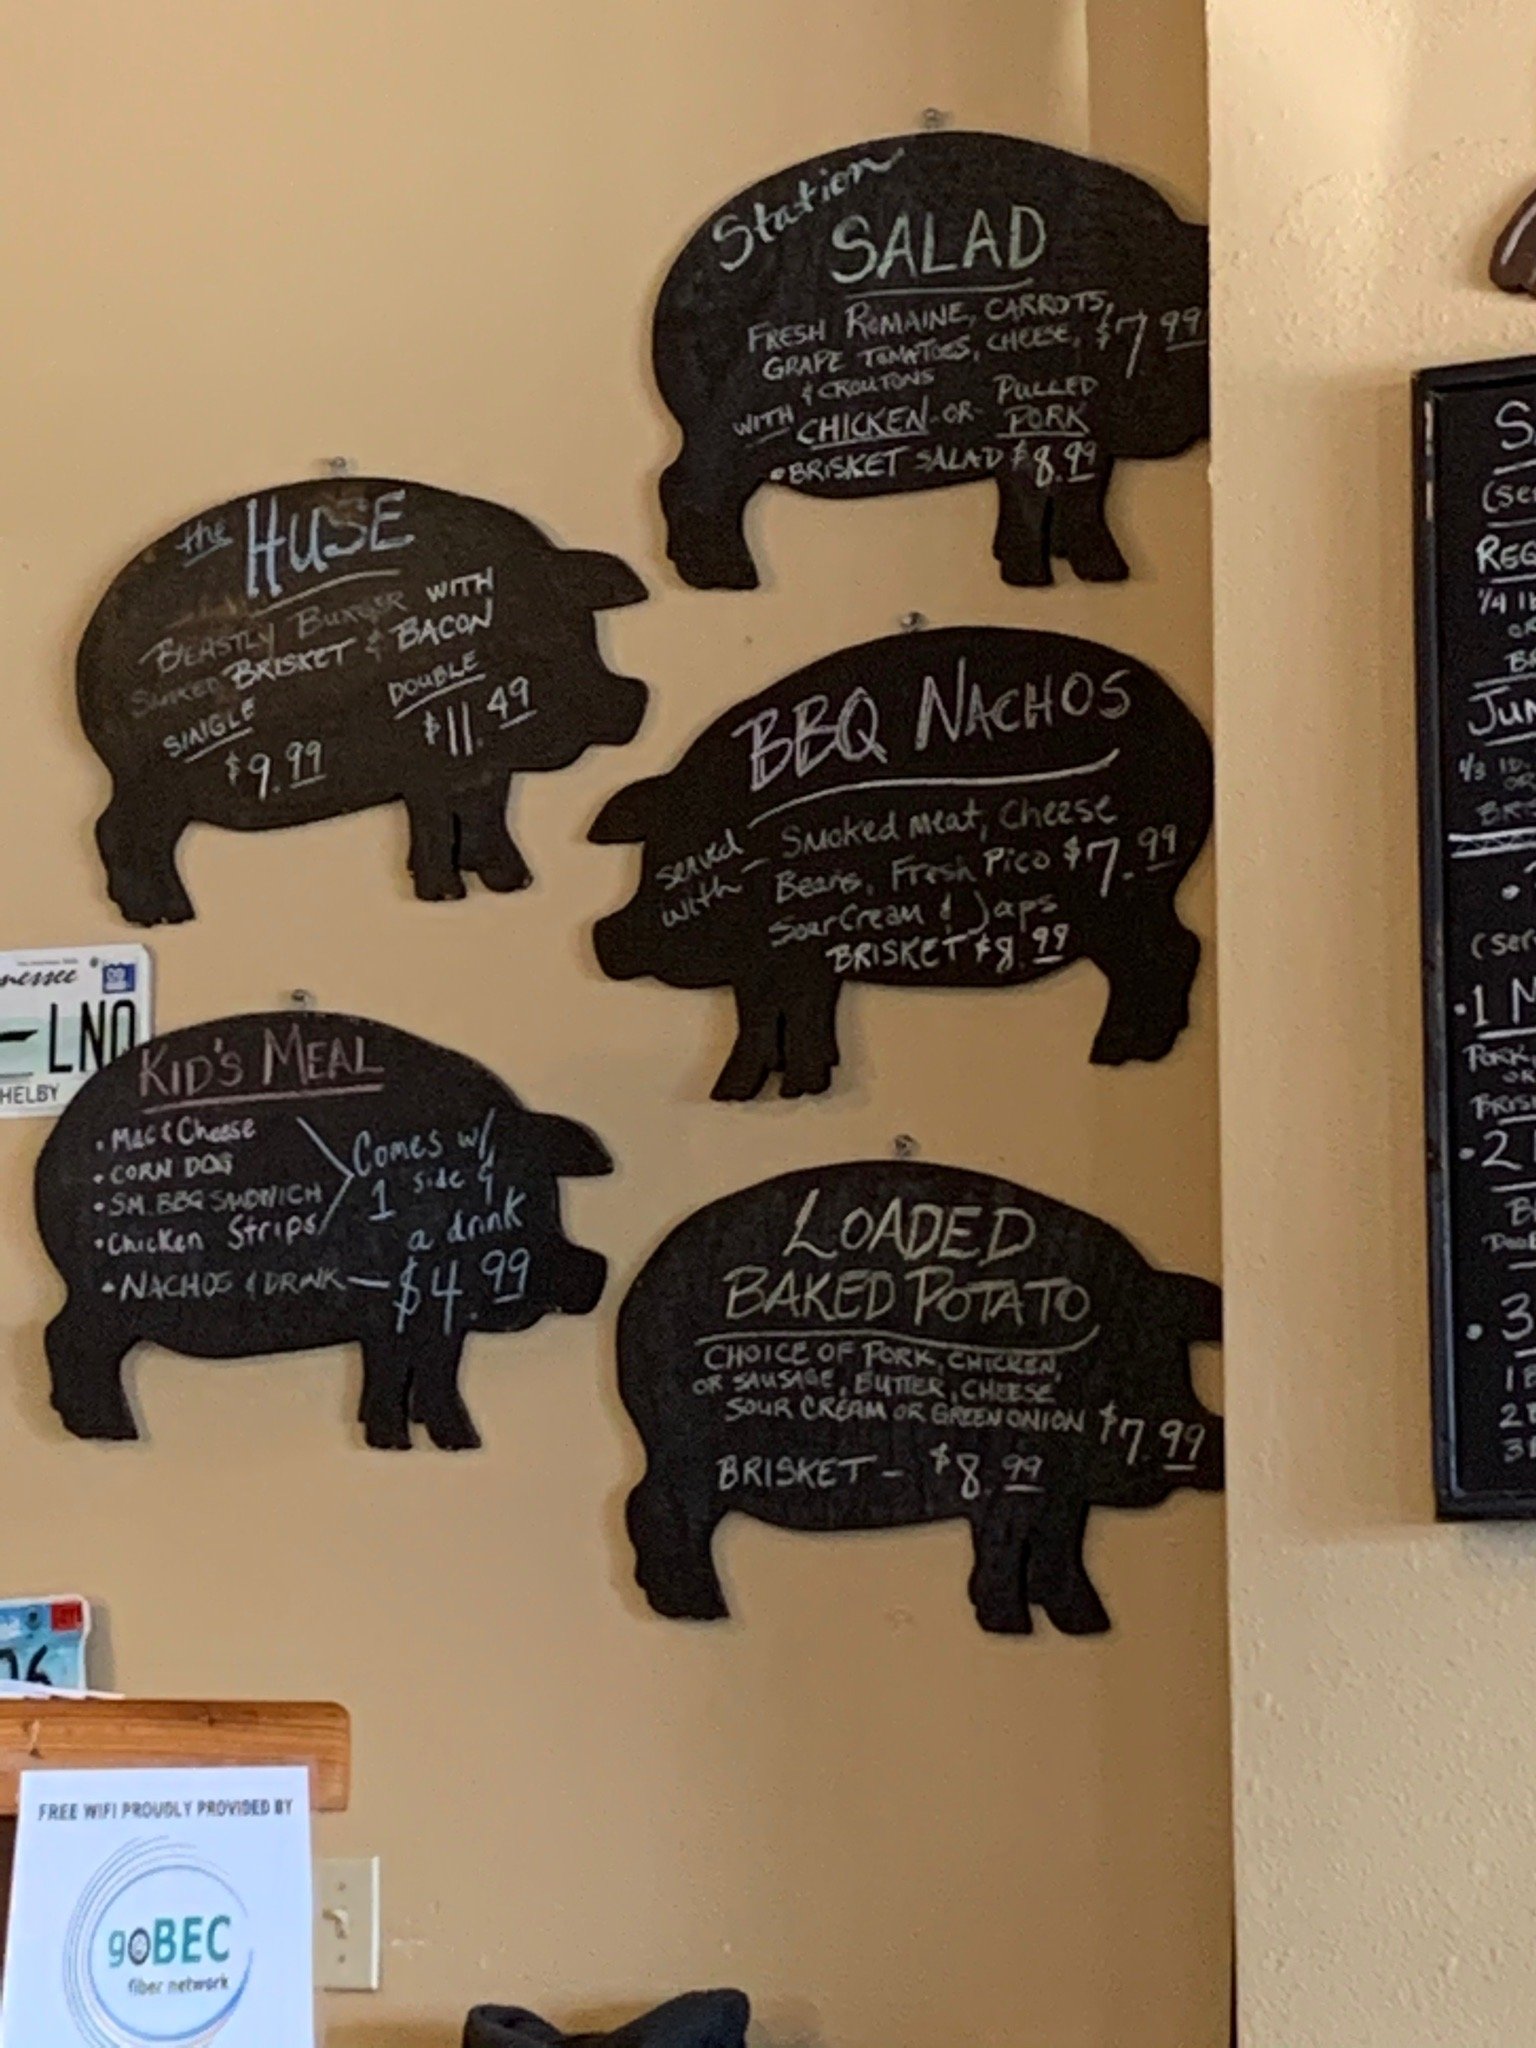 Station
SALAD
FRESH ROMAINE, CARROTS,
GRAPE TOMATOES, CHEESE, $7.99
& CROUTONS
WITH CHICKEN -OR- PULLED PORK
• BRISKET SALAD $8.99
the HUSE
BEASTLY BURGER WITH
SMOKED BRISKET & BACON
SINGLE DOUBLE
$9.99 $11.49
BBQ NACHOS
served with — Smoked meat, Cheese
Beans, Fresh Pico $7.99
Sour Cream & Japs
BRISKET $8.99
nessee
LNQ
HELBY
KID'S MEAL
• Mac & Cheese
• CORN DOG
• SM. BBQ SANDWICH
• Chicken Strips
Comes w/
1 side &
a drink
• NACHOS & DRINK — $4.99
LOADED
BAKED POTATO
CHOICE OF PORK, CHICKEN,
OR SAUSAGE, BUTTER, CHEESE
SOUR CREAM OR GREEN ONION $7.99
BRISKET — $8.99
S
(se
REG
1/4 lb
OR
BR
JUM
1/3 lb.
OR
BR
(ser
• 1 M
PORK
OR
BRIS
• 2
B
• 3
1 B
2 B
3 B
06
FREE WIFI PROUDLY PROVIDED BY
goBEC
fiber network